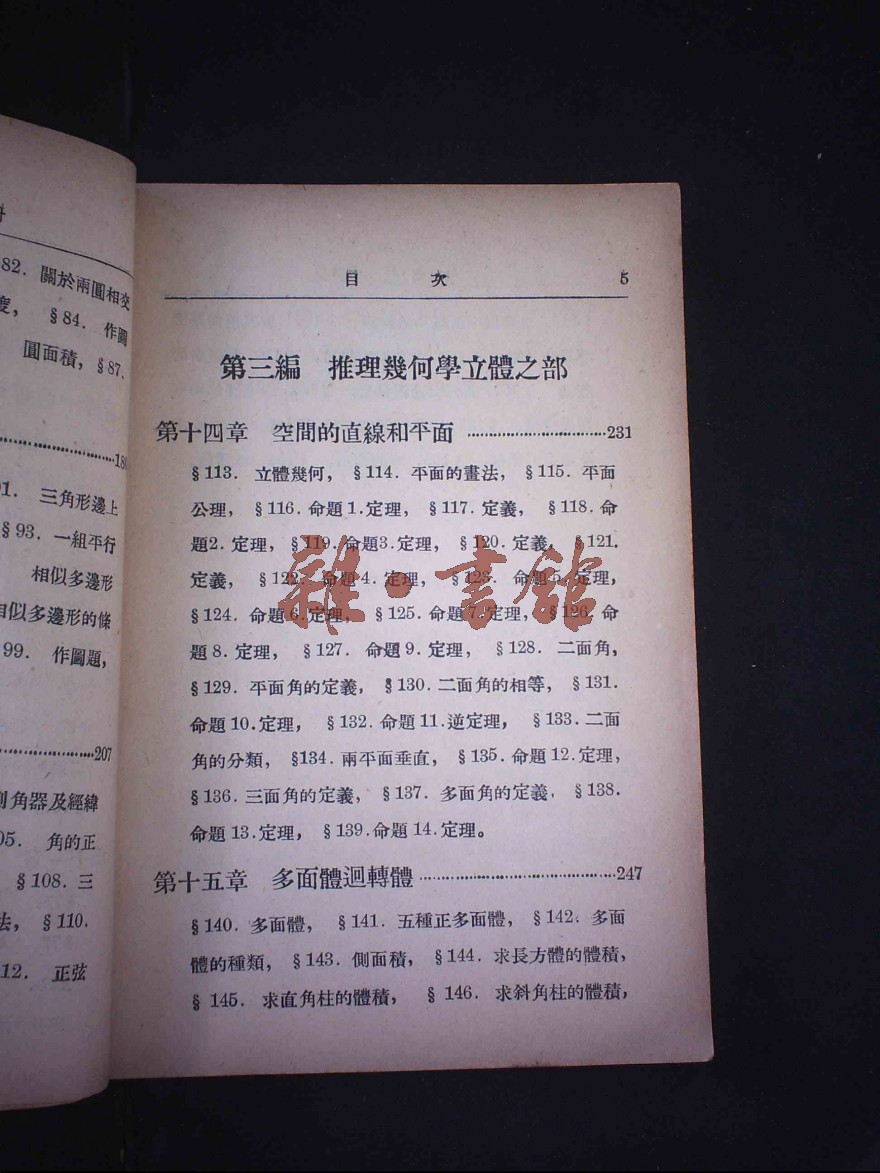 82. 關於兩圓相交
度， §84. 作圖
圓面積，§87.
180
91. 三角形邊上
§93. 一組平行
相似多邊形
相似多邊形的條
99. 作圖題，
207
角器及經緯
05. 角的正
§108. 三
法， §110.
12. 正弦
目 次 5
第三編 推理幾何學立體之部
第十四章 空間的直線和平面 ……………………………231
§113. 立體幾何， §114. 平面的畫法， §115. 平面
公理， §116. 命題1.定理， §117. 定義， §118. 命
題2. 定理， §119. 命題3. 定理， §120. 定義， §121.
定義， §122. 命題4. 定理， §123. 命題5. 定理，
§124. 命題6. 定理， §125. 命題7. 定理， §126. 命
題8. 定理， §127. 命題9. 定理， §128. 二面角，
§129. 平面角的定義， §130. 二面角的相等， §131.
命題10. 定理， §132. 命題11. 逆定理， §133. 二面
角的分類， §134. 兩平面垂直， §135. 命題12. 定理，
§136. 三面角的定義， §137. 多面角的定義， §138.
命題13. 定理， §139. 命題14. 定理。
第十五章 多面體迴轉體 ……………………………247
§140. 多面體， §141. 五種正多面體， §142. 多面
體的種類， §143. 側面積， §144. 求長方體的體積，
§145. 求直角柱的體積， §146. 求斜角柱的體積，
雜·書館